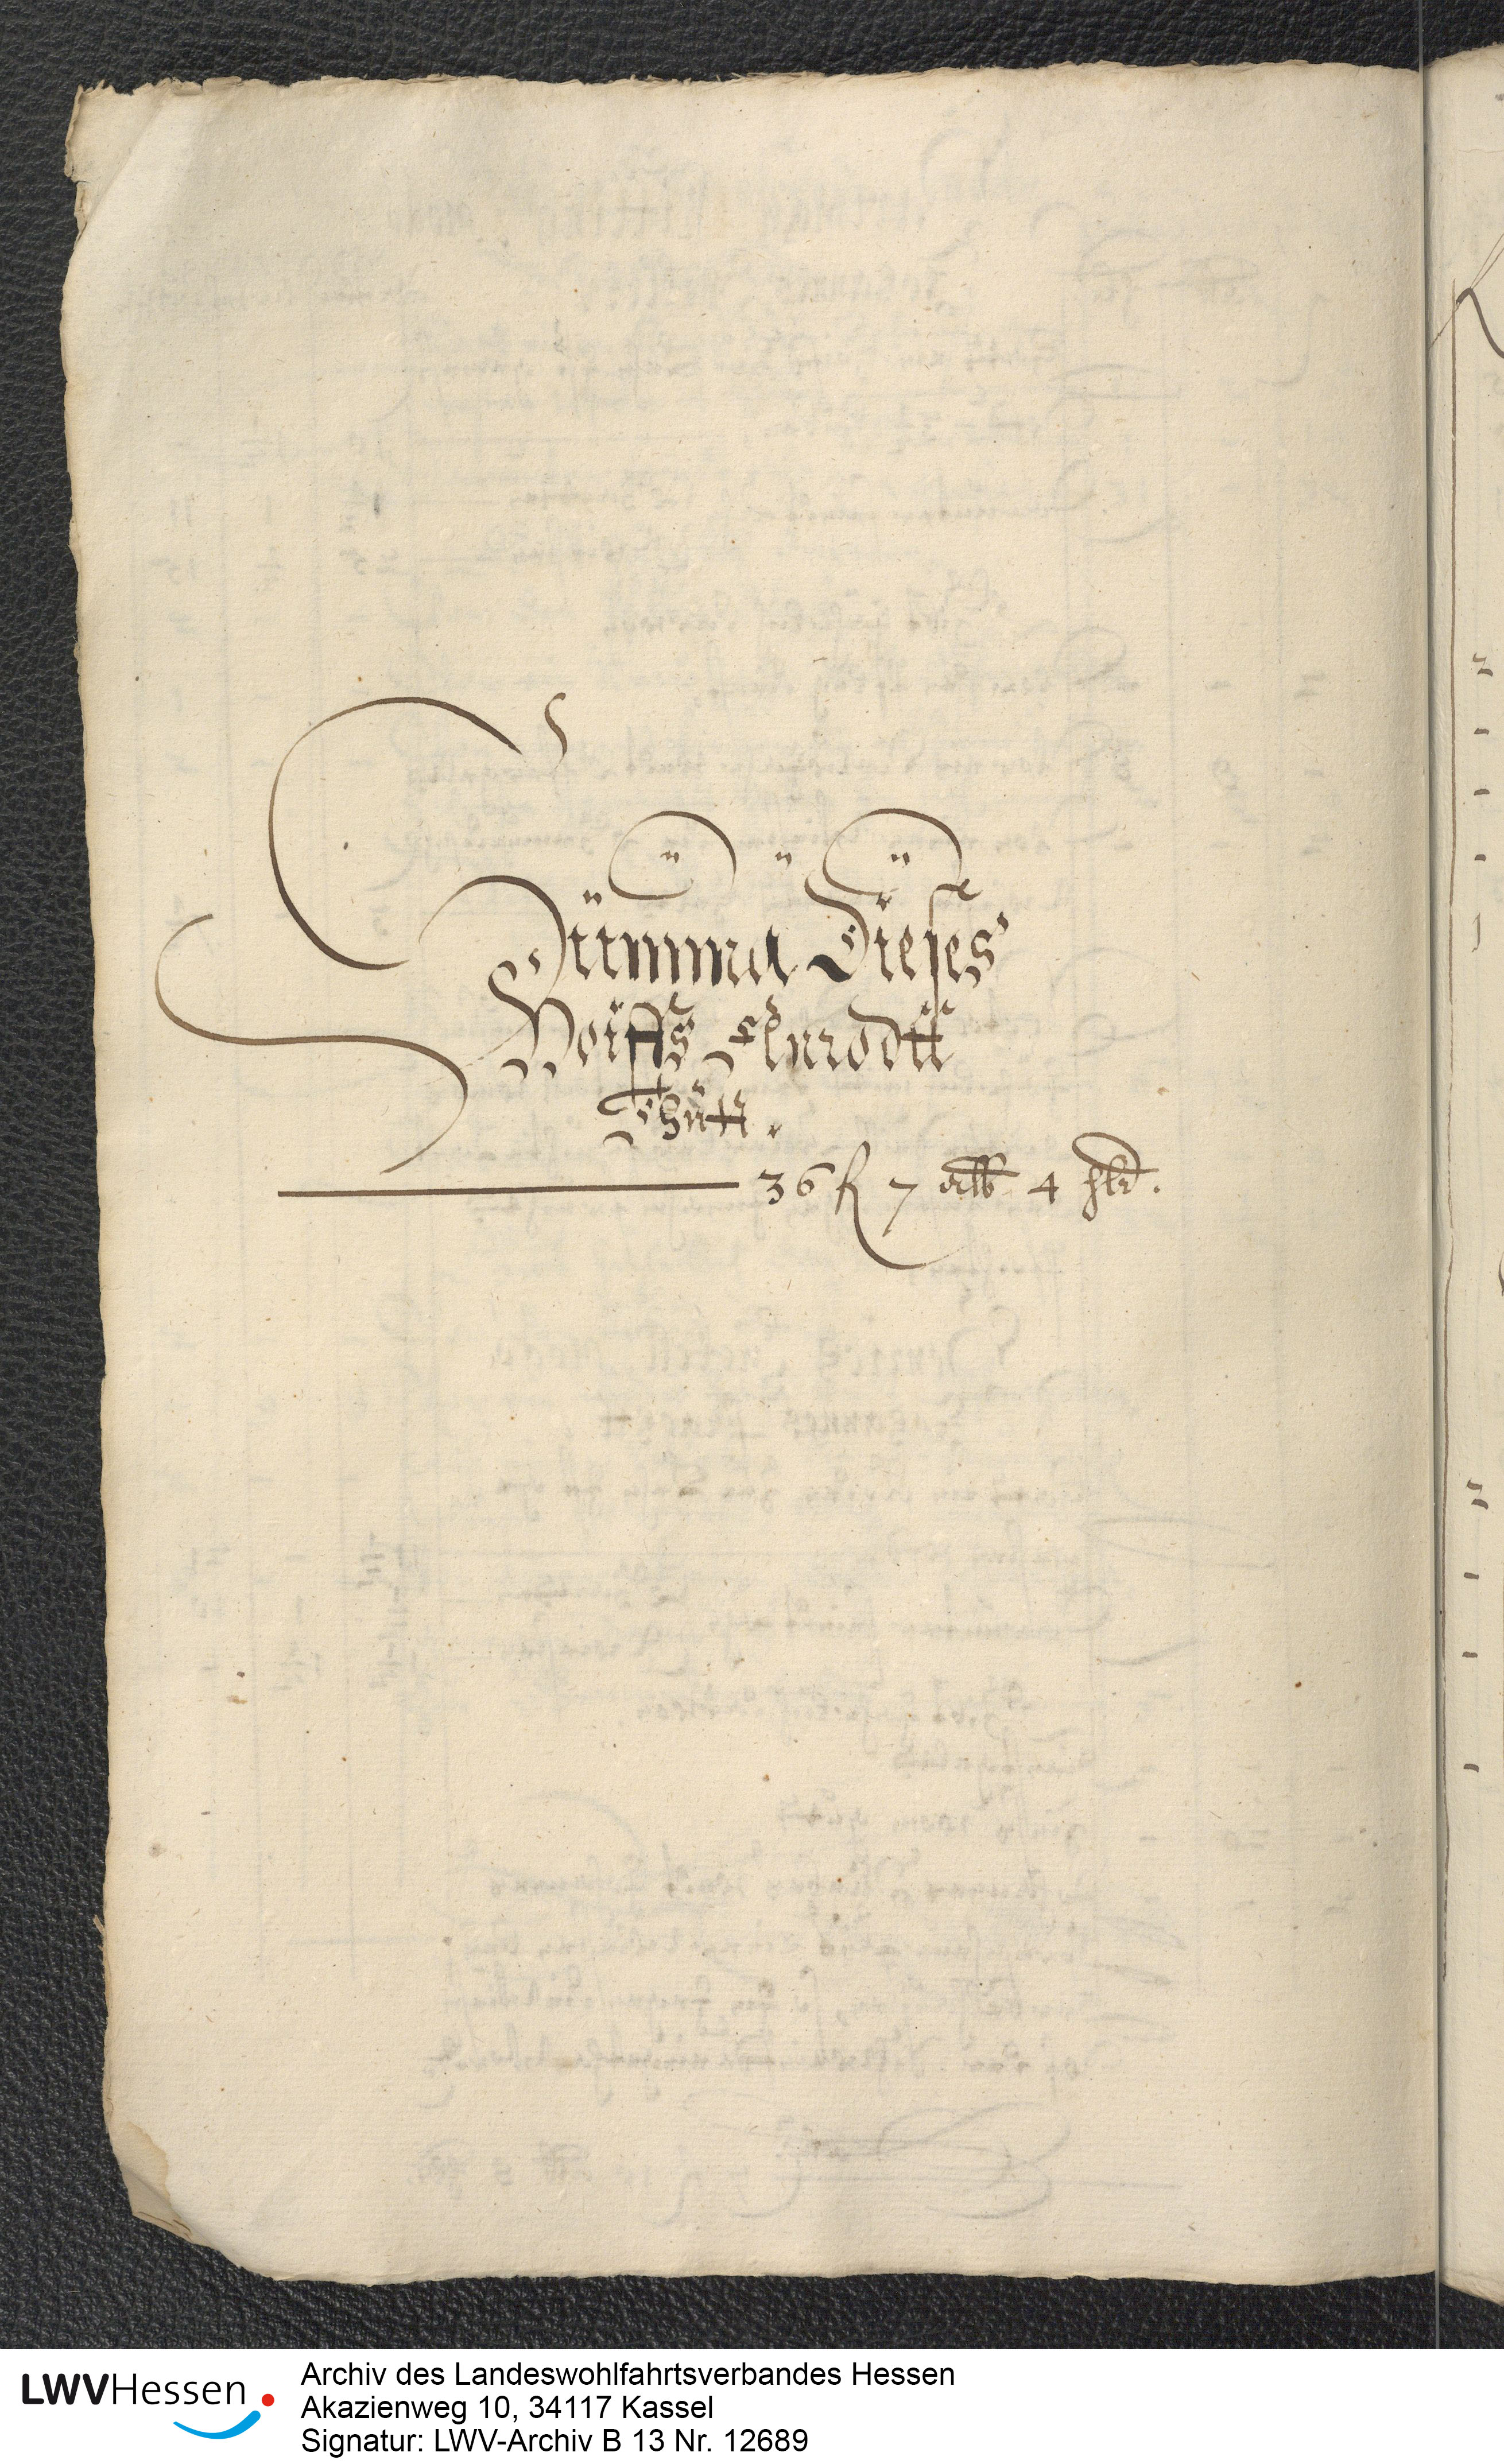 Summa Dieses
Dorffs Elnrodtt
Thutt.
36 fl 7 alb 4 hlr.
LWVHessen
Archiv des Landeswohlfahrtsverbandes Hessen
Akazienweg 10, 34117 Kassel
Signatur: LWV-Archiv B 13 Nr. 12689